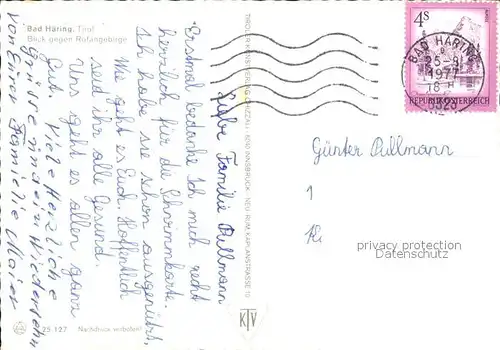 Bad Häring, Tirol
Blick gegen Rofangebirge
Liebe Familie Pullmann
Erstmal bedanke Ich mich recht
herzlich für die Schwimmkarte.
Ich habe sie schon ausgenützt.
Wie geht es Euch. Hoffentlich
seid ihr alle Gesund.
Uns geht es allen ganz
Gut. Viele Herzliche
Grüsse und ein Wiedersehn
von Eurer Familie Maier
25 127 Nachdruck verboten!
TIROLER KUNSTVERLAG CHIZZALI · 6020 INNSBRUCK - NEU RUM, KAPLANSTRASSE 10
KTV
4S
REPUBLIK ÖSTERREICH
BAD HÄRING
25-8
1977
18 H
6323
Günter Pullmann
1
privacy protection
Datenschutz